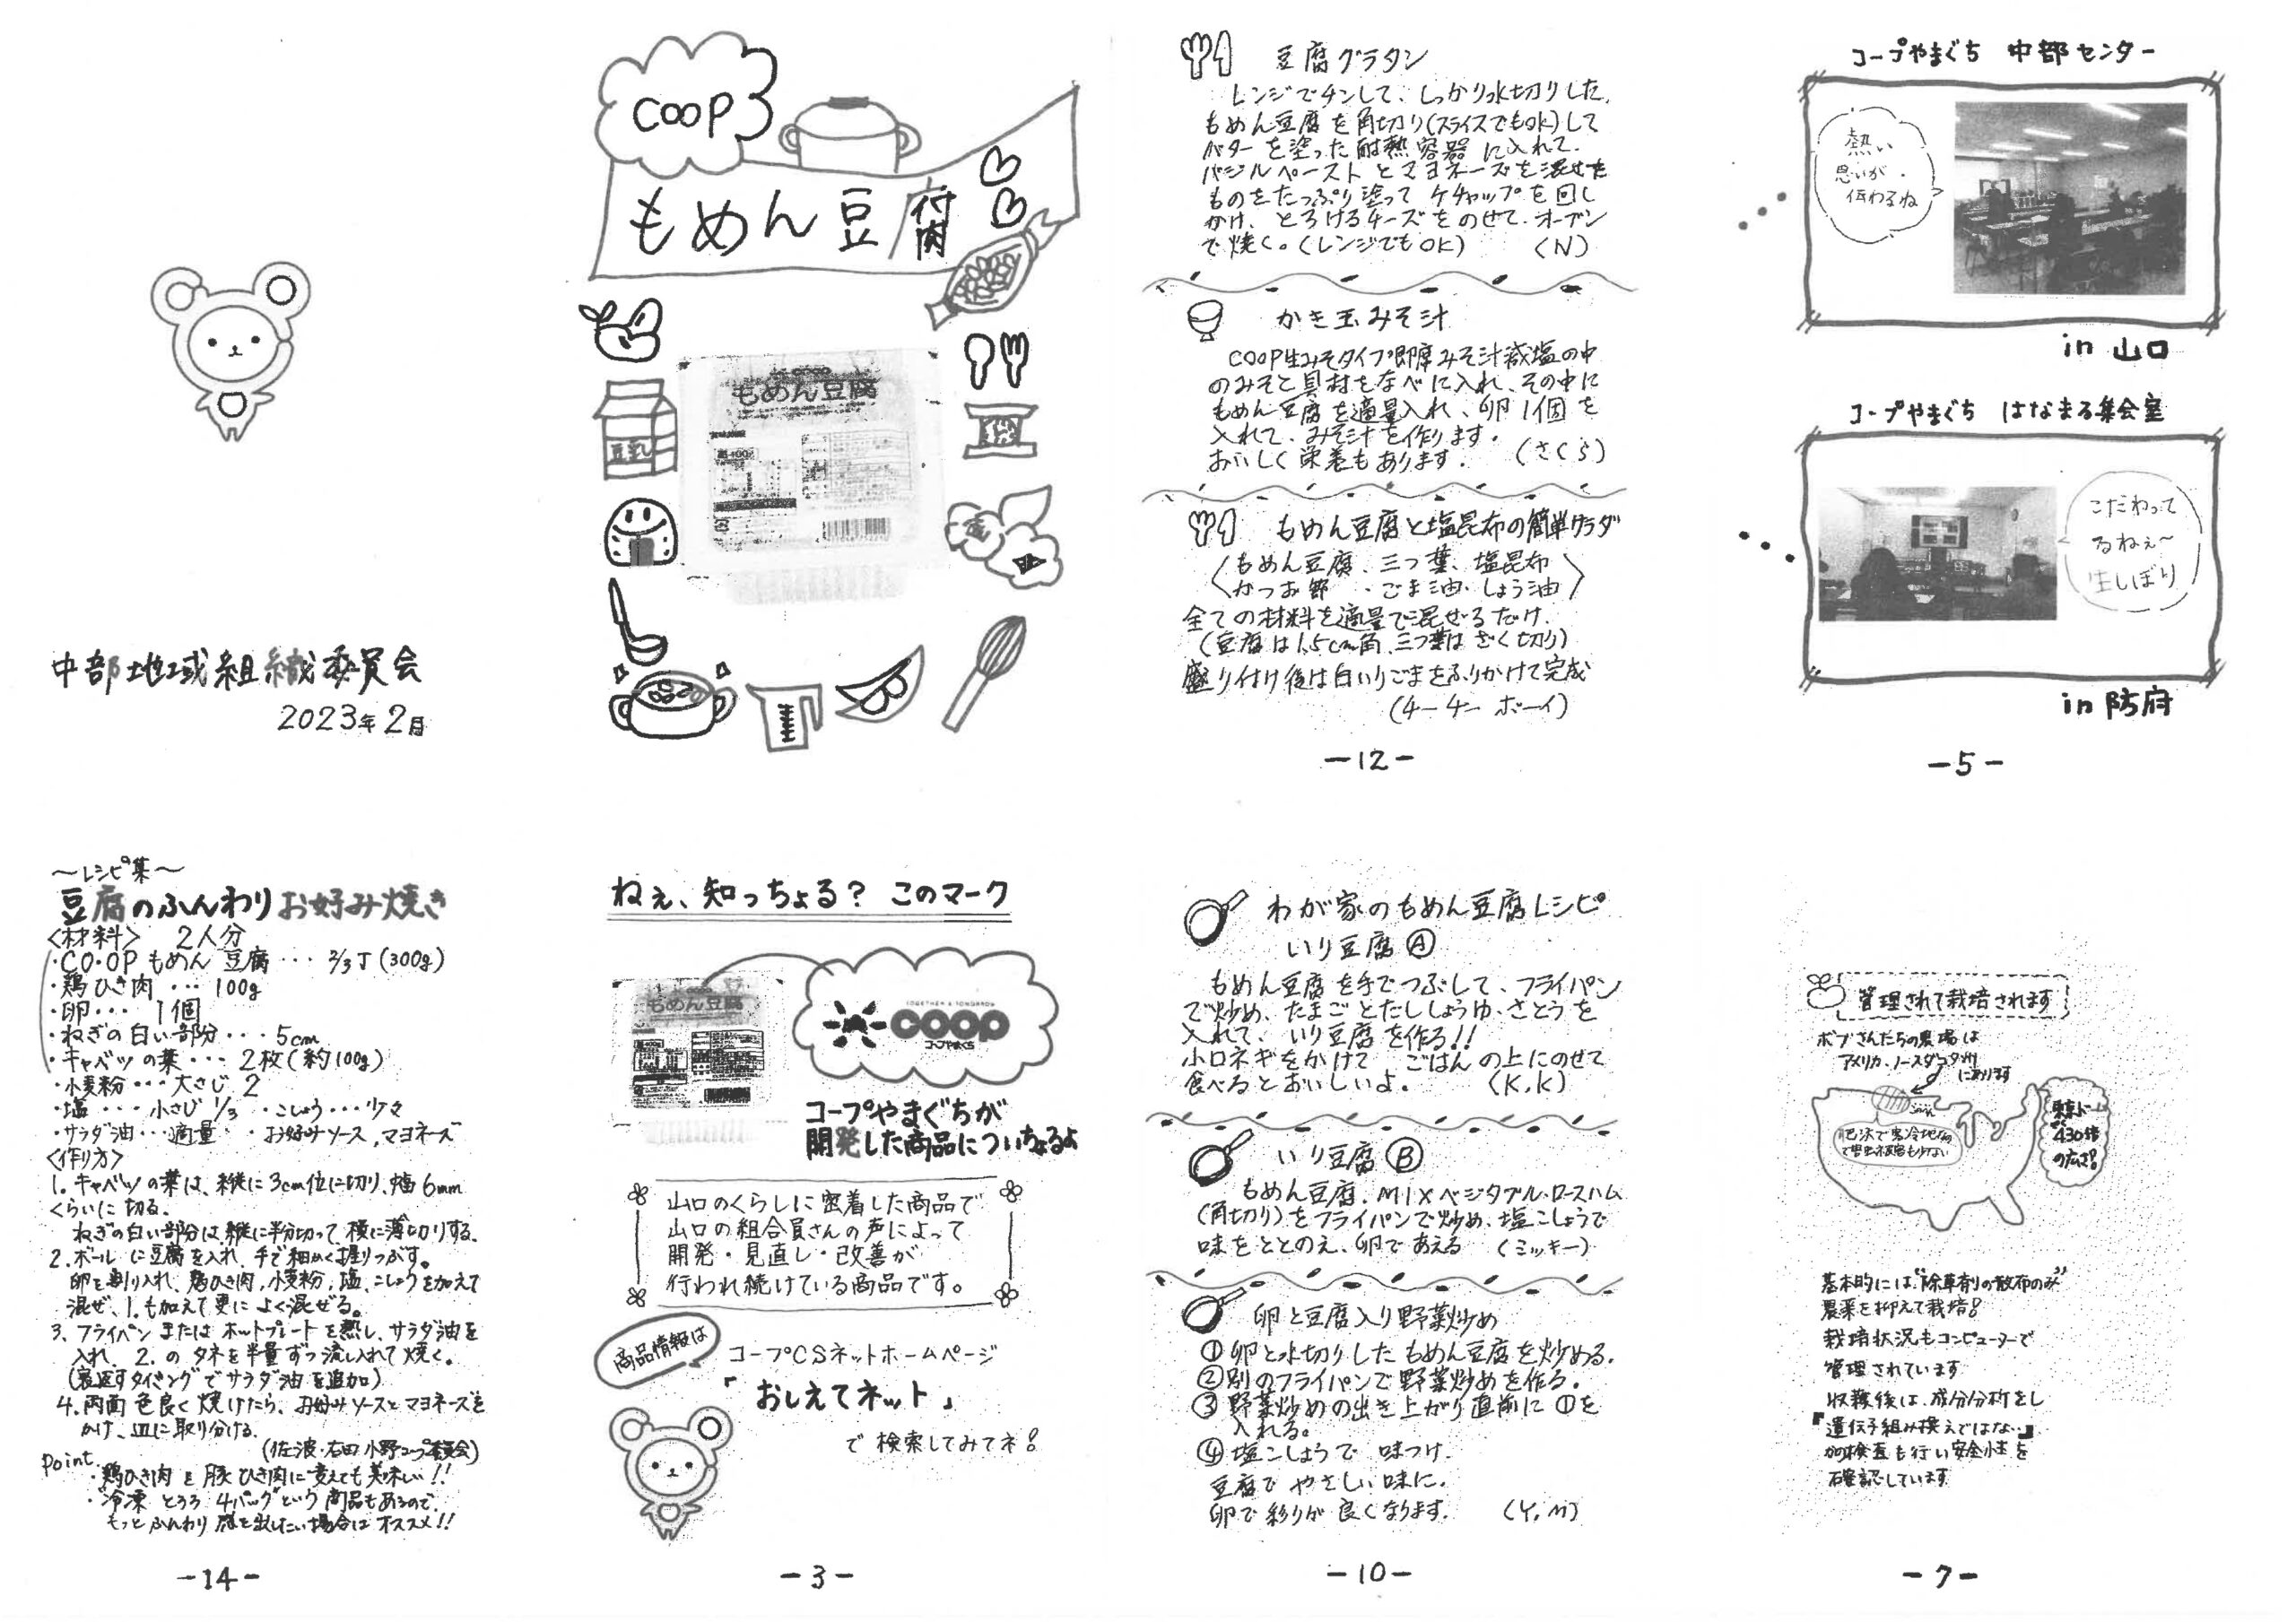 中部地域組織委員会
2023年2月
COOP
もめん豆腐
もめん豆腐
豆乳
豆腐グラタン
レンジでチンして、しっかり水切りした
もめん豆腐を角切り(スライスでもOK)して
バターを塗った耐熱容器に入れて、
バジルペーストとマヨネーズを混ぜた
ものをたっぷり塗ってケチャップを回し
かけ、とろけるチーズをのせて、オーブン
で焼く。(レンジでもOK) (N)
かき玉みそ汁
COOP生みそタイプ即席みそ汁減塩の中
のみそと具材をなべに入れ、その中に
もめん豆腐を適量入れ、卵1個を
入れて、みそ汁を作ります。
おいしく栄養もあります。 (さくら)
もめん豆腐と塩昆布の簡単サラダ
もめん豆腐、三つ葉、塩昆布
かつお節・ごま油・しょう油
全ての材料を適量で混ぜるだけ。
(豆腐は1.5cm角、三つ葉はざく切り)
盛り付け後は白いりごまをふりかけて完成
(チーチーボーイ)
-12-
コープやまぐち 中部センター
熱い
思いが
伝わるね
in 山口
コープやまぐち はなまる集会室
こだわって
るねぇ〜
生しぼり
in 防府
-5-
〜レシピ集〜
豆腐のふんわりお好み焼き
<材料> 2人分
・CO・OPもめん豆腐… 2/3丁(300g)
・鶏ひき肉… 100g
・卵… 1個
・ねぎの白い部分… 5cm
・キャベツの葉… 2枚(約100g)
・小麦粉…大さじ2
・塩…小さじ1/3 ・こしょう…少々
・サラダ油…適量 ・お好みソース,マヨネーズ
<作り方>
1. キャベツの葉は、縦に3cm位に切り、幅6mm
くらいに切る。
ねぎの白い部分は、縦に半分切って、横に薄切りする。
2. ボールに豆腐を入れ、手で細かく握りつぶす。
卵を割り入れ、鶏ひき肉,小麦粉,塩,こしょうを加えて
混ぜ、1.も加えて更によく混ぜる。
3. フライパンまたはホットプレートを熱し、サラダ油を
入れ、2.のタネを半量ずつ流し入れて焼く。
(裏返すタイミングでサラダ油を追加)
4. 両面色良く焼けたら、お好みソースとマヨネーズを
かけ、皿に取り分ける。
(佐波・右田・小野コープ委員会)
Point
・鶏ひき肉を豚ひき肉に変えても美味しい!!
・"冷凍とろろ4パック"という商品もあるので、
もっとふんわり感を出したい場合はオススメ!!
-14-
ねぇ、知っちょる? このマーク
もめん豆腐
TOGETHER & TOMORROW
COOP
コープやまぐち
コープやまぐちが
開発した商品についちょるよ
山口のくらしに密着した商品で
山口の組合員さんの声によって
開発・見直し・改善が
行われ続けている商品です。
商品情報は
コープCSネットホームページ
「おしえてネット」
で検索してみてネ!
-3-
わが家のもめん豆腐レシピ
いり豆腐Ⓐ
もめん豆腐を手でつぶして、フライパン
で炒め、たまごとだししょうゆ、さとうを
入れて、いり豆腐を作る!!
小口ネギをかけて ごはんの上にのせて
食べるとおいしいよ。 (K.K)
いり豆腐Ⓑ
もめん豆腐、MIXベジタブル・ロースハム
(角切り)をフライパンで炒め、塩こしょうで
味をととのえ、卵であえる (ミッキー)
卵と豆腐入り野菜炒め
①卵と水切りしたもめん豆腐を炒める。
②別のフライパンで野菜炒めを作る。
③野菜炒めの出き上がり直前に①を
入れる。
④塩こしょうで味つけ
豆腐でやさしい味に。
卵で彩りが良くなります。 (Y.M)
-10-
管理されて栽培されます
ボブさんたちの農場は
アメリカ、ノースダコタ州
にあります
肥沃で寒冷地なので
害虫被害も少ない
東京ドーム
430倍
の広さ!
基本的には"除草剤の散布のみ"
農薬を抑えて栽培!
栽培状況もコンピューターで
管理されています
収穫後は、成分分析をし
『遺伝子組み換えではない』
か検査も行い安全性を
確認しています
-7-